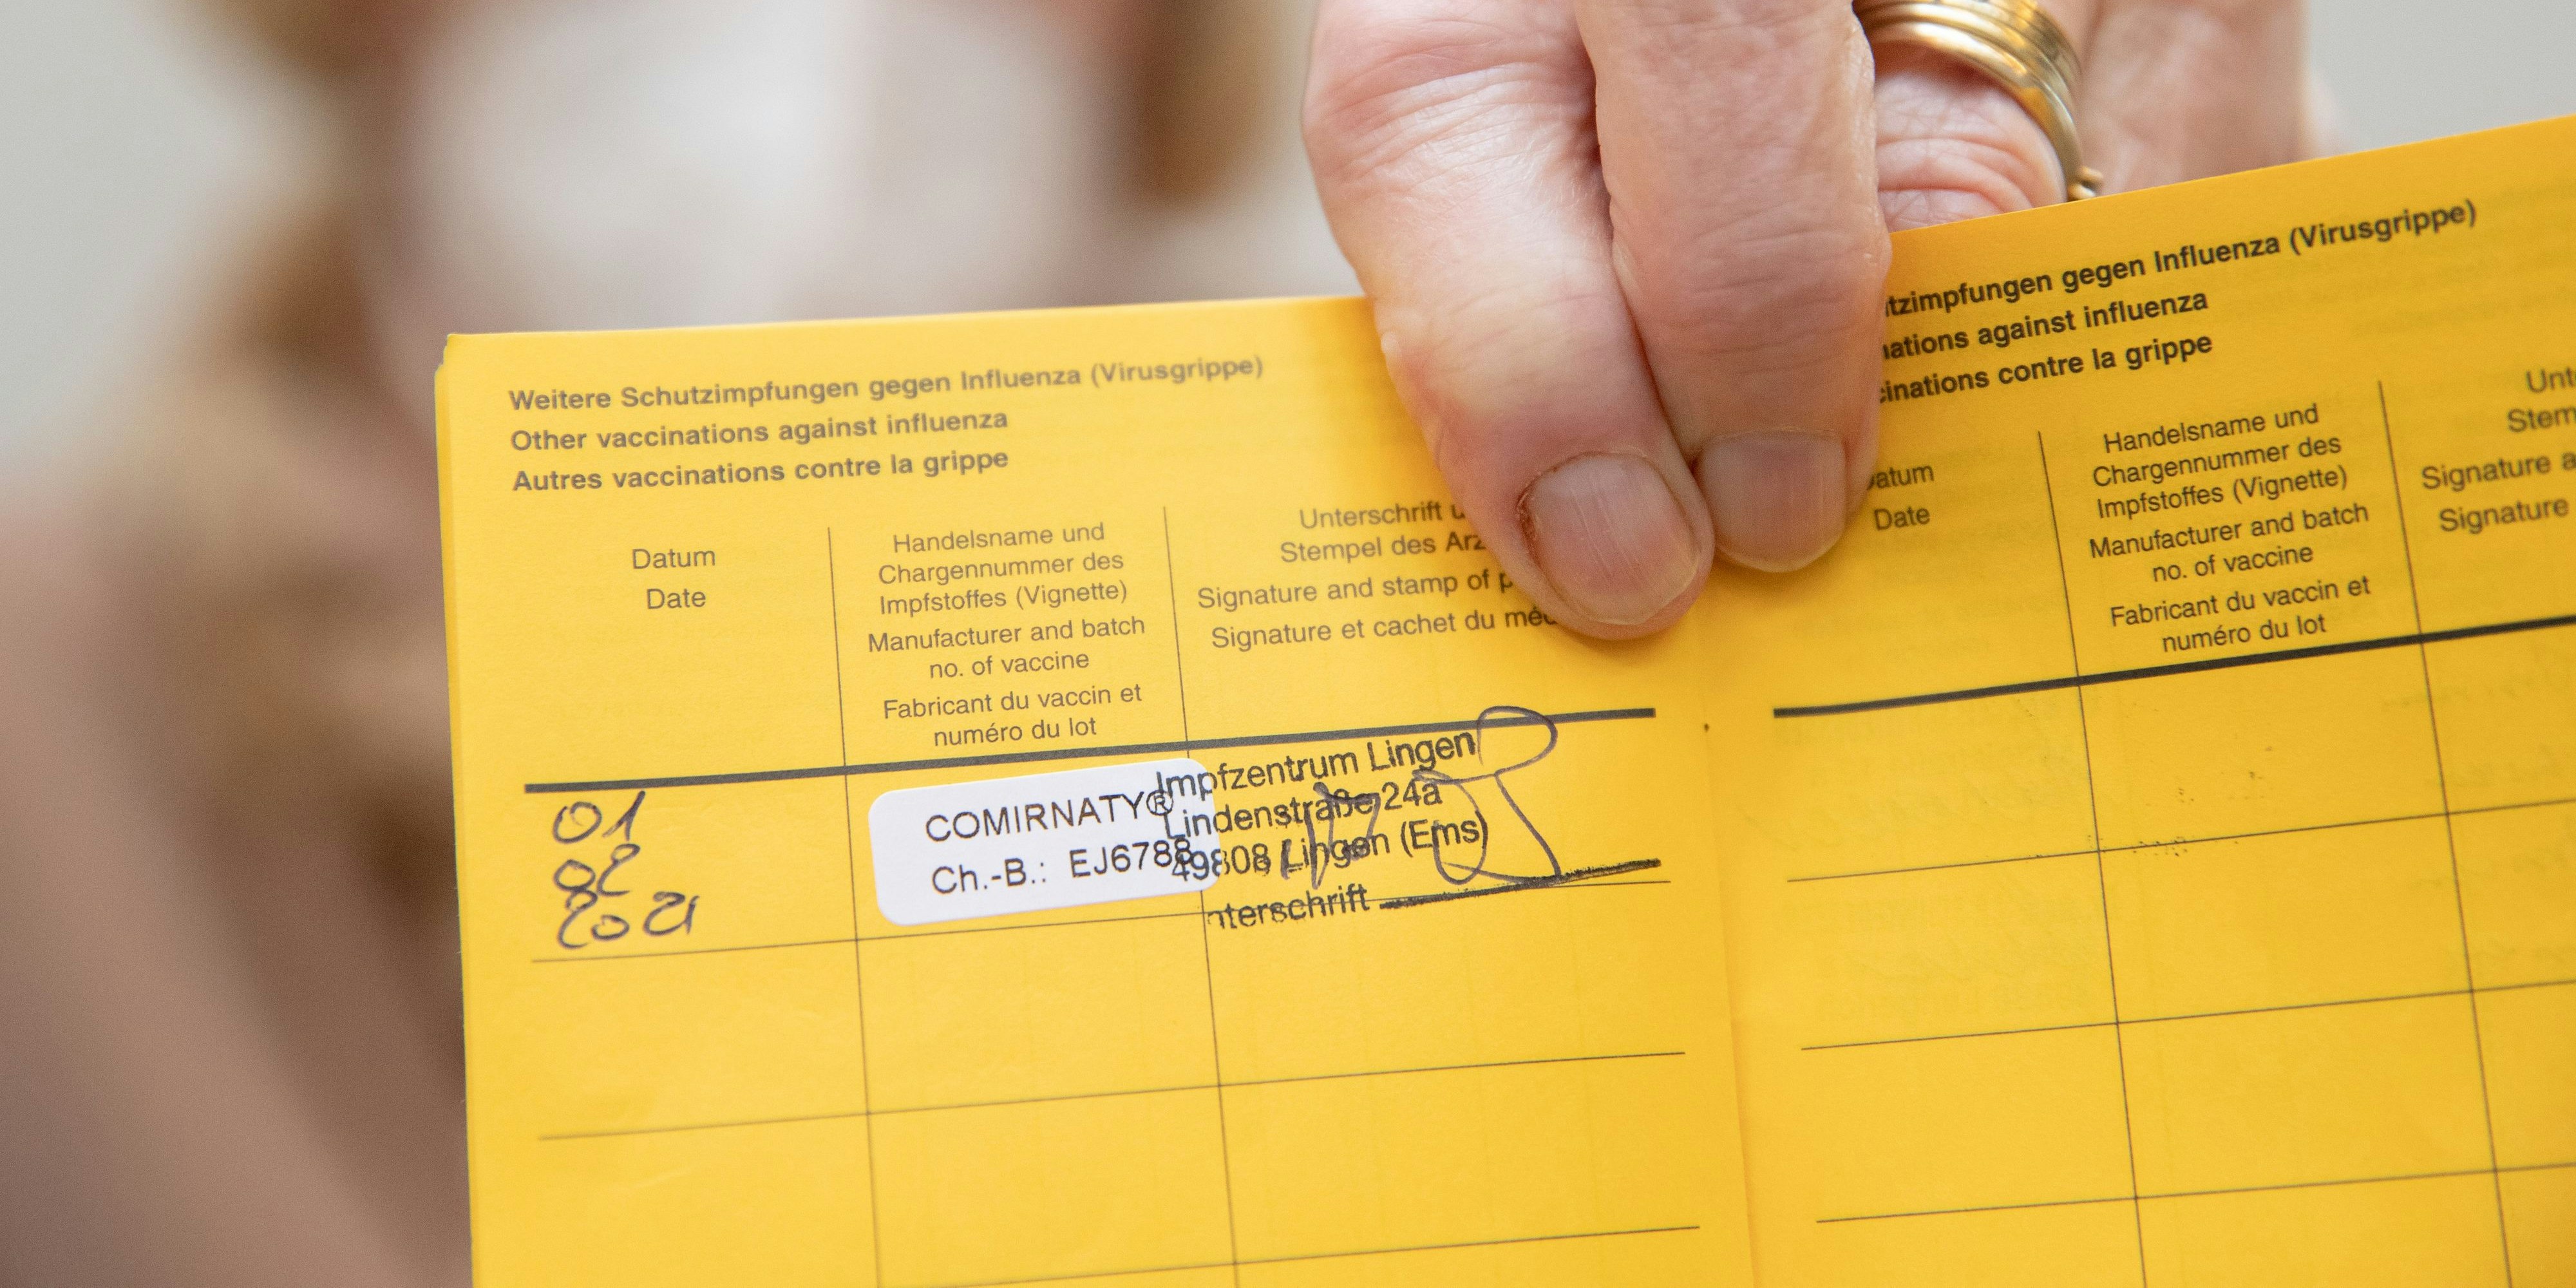 Weitere Schutzimpfungen gegen Influenza (Virusgrippe)
Other vaccinations against influenza
Autres vaccinations contre la grippe
Datum
Date
Handelsname und
Chargennummer des
Impfstoffes (Vignette)
Manufacturer and batch
no. of vaccine
Fabricant du vaccin et
numéro du lot
Unterschrift
Stempel des
Signature and stamp of
Signature et cachet du
01
02
2021
COMIRNATY®
Ch.-B.: EJ6788
Impfzentrum Lingen
Lindenstraße 24a
49808 Lingen (Ems)
nterschrift
tzimpfungen gegen Influenza (Virusgrippe)
nations against influenza
cinations contre la grippe
atum
Date
Handelsname und
Chargennummer des
Impfstoffes (Vignette)
Manufacturer and batch
no. of vaccine
Fabricant du vaccin et
numéro du lot
Unt
Stem
Signature a
Signature